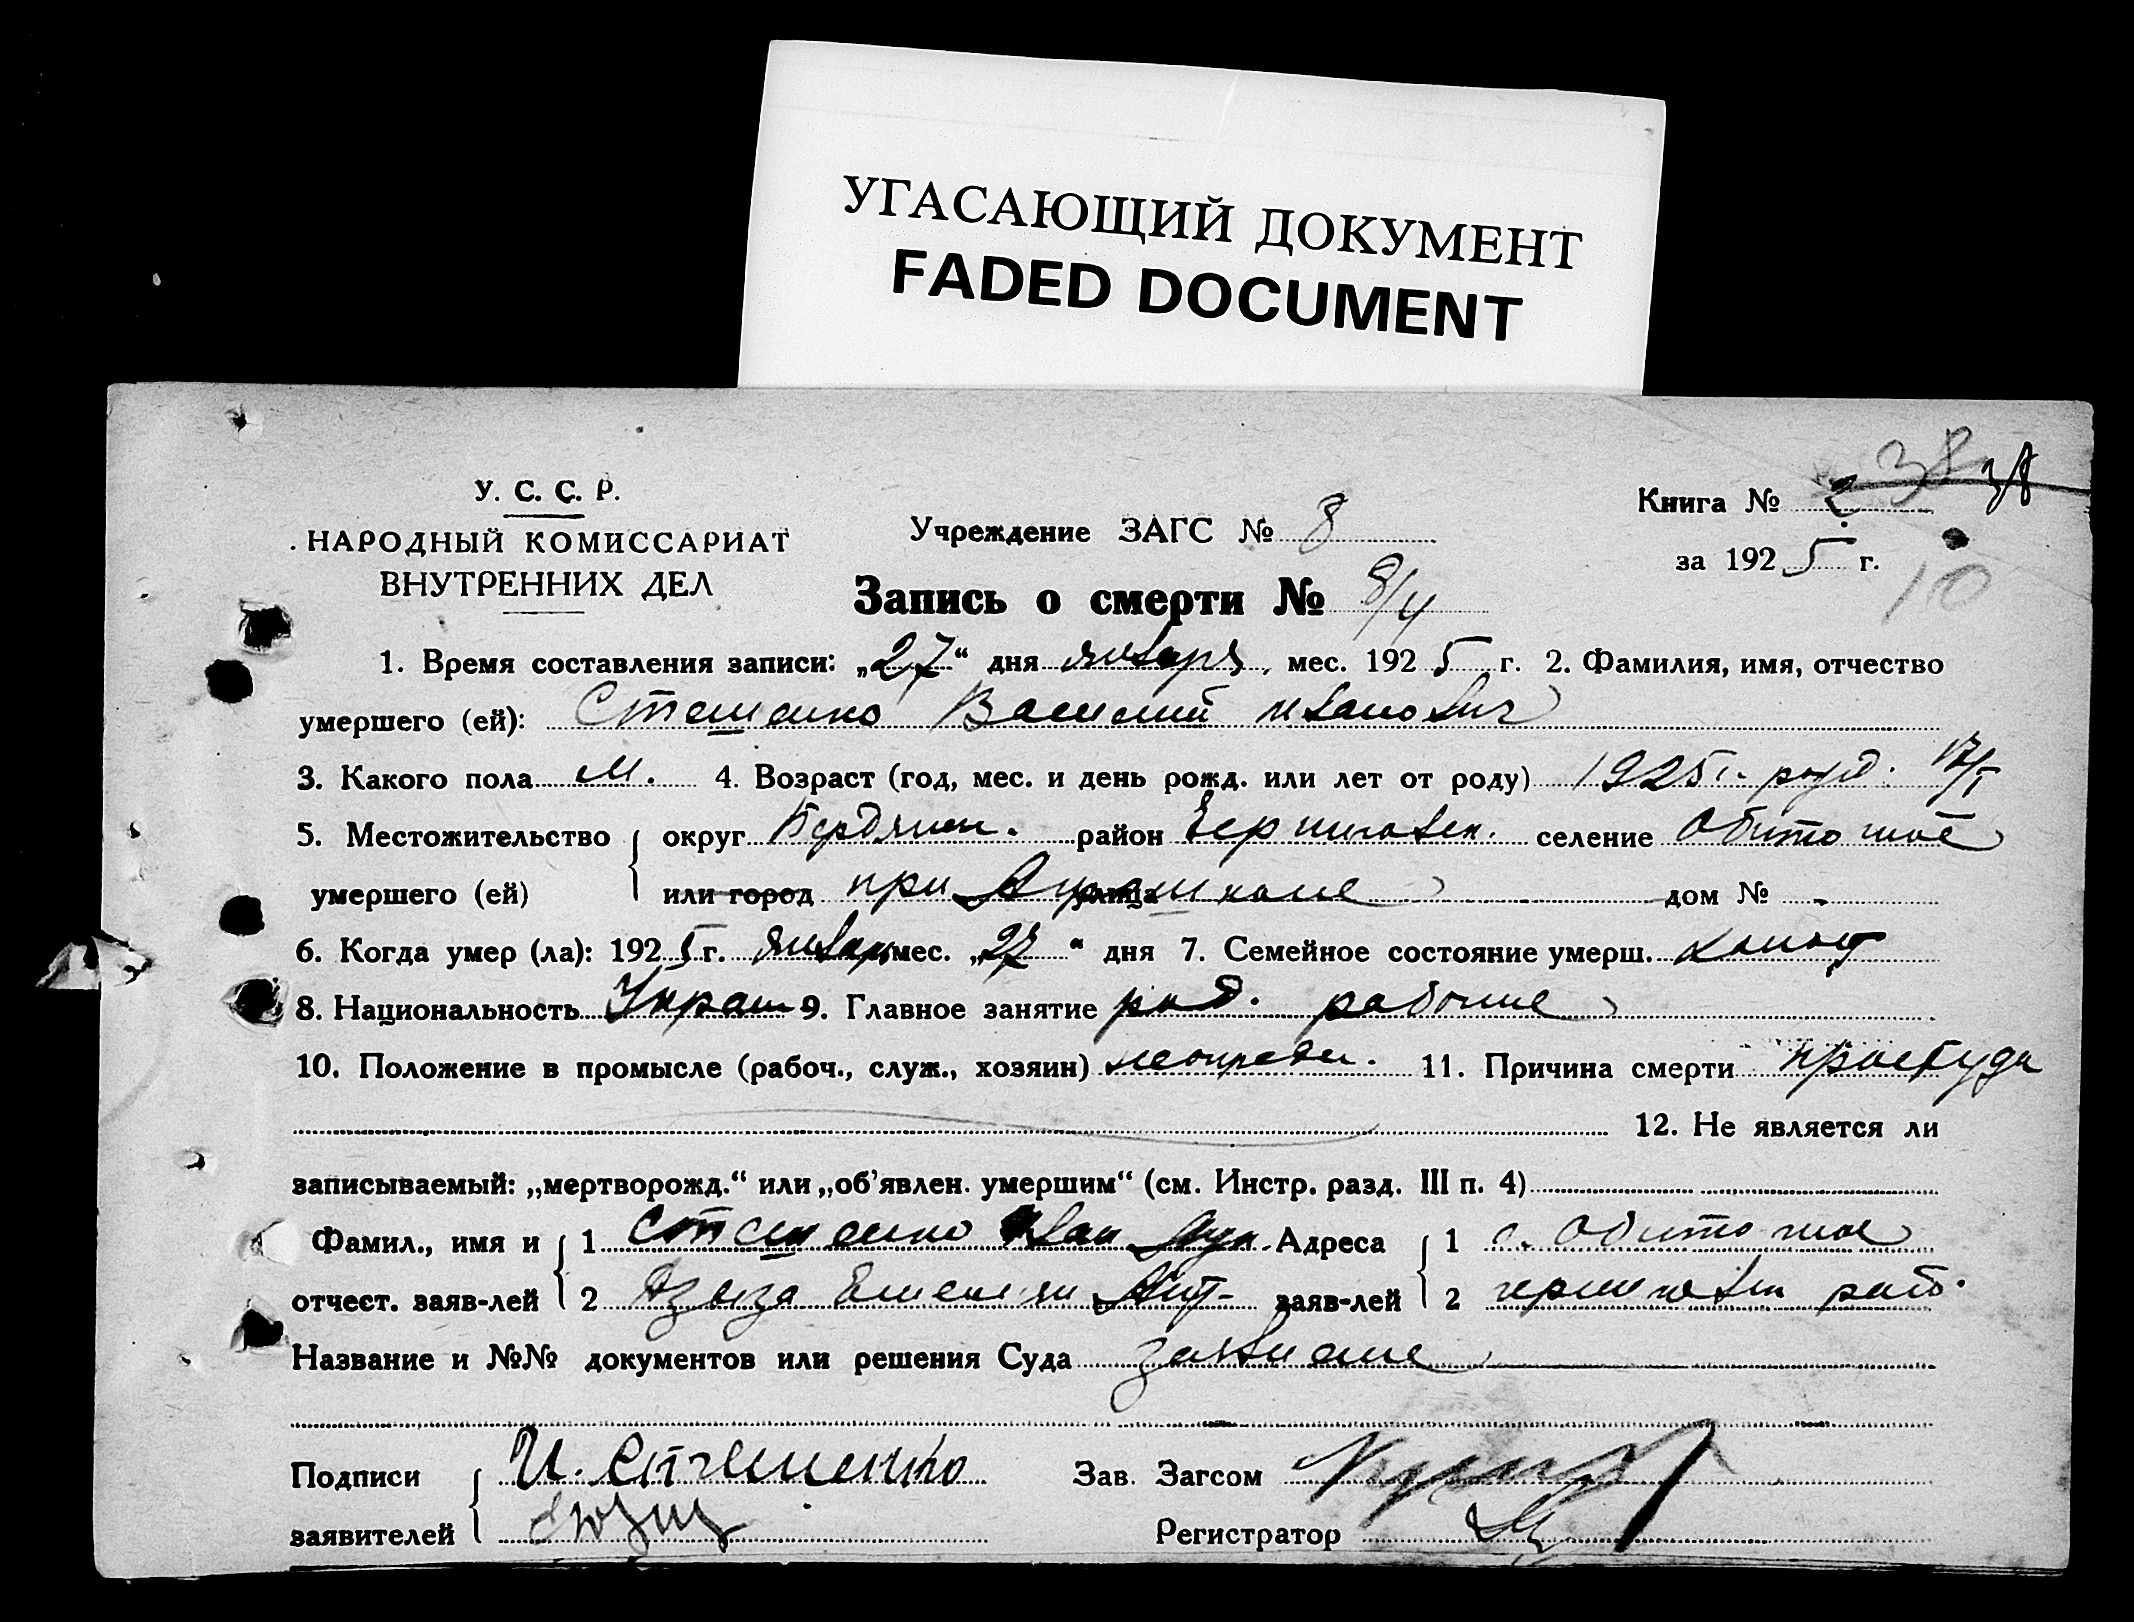 УГАСАЮЩИЙ ДОКУМЕНТ
FADED DOCUMENT
38 38
У. С. С. Р.
НАРОДНЫЙ КОМИССАРИАТ
ВНУТРЕННИХ ДЕЛ
Учреждение ЗАГС № 8
Книга № 2
за 1925 г.
10
Запись о смерти № 8/4
1. Время составления записи: „27“ дня января мес. 1925 г. 2. Фамилия, имя, отчество
умершего (ей): Стешенко Василий Иванович
3. Какого пола м. 4. Возраст (год, мес. и день рожд. или лет от роду) 1925 г. рожд. 17/I
5. Местожительство округ Бердянск. район Черниговск. селение Обиточное
умершего (ей) или город при улица дом № -
6. Когда умер (ла): 1925 г. январ мес. „27“ дня 7. Семейное состояние умерш. холост
8. Национальность Украин 9. Главное занятие род. рабочие
10. Положение в промысле (рабоч., служ., хозяин) 11. Причина смерти простуда
12. Не является ли
записываемый: „мертворожд.“ или „об'явлен. умершим“ (см. Инстр. разд. III п. 4)
Фамил., имя и 1 Стешенко Иван Адреса 1 с. Обиточное
отчест. заяв-лей 2 Емельян заяв-лей 2 Черниговск рай.
Название и №№ документов или решения Суда
Подписи И. Стешенко Зав. Загсом
заявителей Регистратор